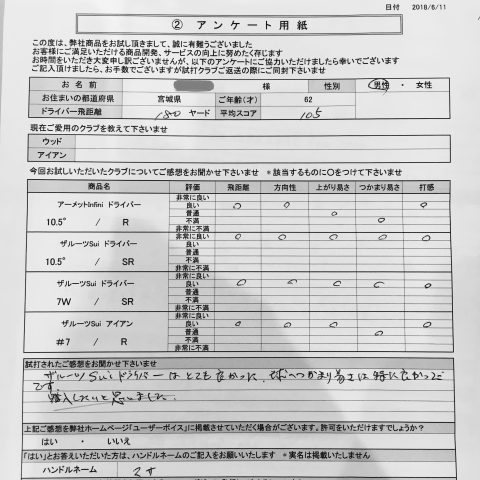 日付 2018/6/11
② アンケート用紙
この度は、弊社商品をお試し頂きまして、誠に有難うございました
お客様にご満足いただける商品開発、サービスの向上に努めたく存じます
お時間をいただき大変申し訳ございませんが、以下のアンケートにご協力いただけましたら幸いでございます
ご記入頂けましたら、お手数でございますが試打クラブご返送の際にご同封下さいませ
お 名 前 様 性別 男性 ・ 女性
お住まいの都道府県 宮城県 ご年齢(才) 62
ドライバー飛距離 180 ヤード 平均スコア 105
現在ご愛用のクラブを教えて下さいませ
ウッド
アイアン
今回お試しいただいたクラブについてご感想をお聞かせ下さいませ *該当するものに〇をつけて下さいませ
商品名 評価 飛距離 方向性 上がり易さ つかまり易さ 打感
アーメットInfini ドライバー
10.5° / R
非常に良い
良い
普通
不満
非常に不満
ザルーツSui ドライバー
10.5° / SR
非常に良い
良い
普通
不満
非常に不満
ザルーツSui ドライバー
7W / SR
非常に良い
良い
普通
不満
非常に不満
ザルーツSui アイアン
#7 / R
非常に良い
良い
普通
不満
非常に不満
試打されたご感想をお聞かせ下さいませ
ザルーツSuiドライバーはとても良かった、球へつかまり易さは特に良かった
です
購入したいと思いました。
上記ご感想を弊社ホームページ「ユーザーボイス」に掲載させていただく場合がございます。許可をいただけますでしょうか?
はい ・ いいえ
「はい」とお答えいただいた方は、ハンドルネームのご記入をお願いいたします *実名は掲載いたしません
ハンドルネーム